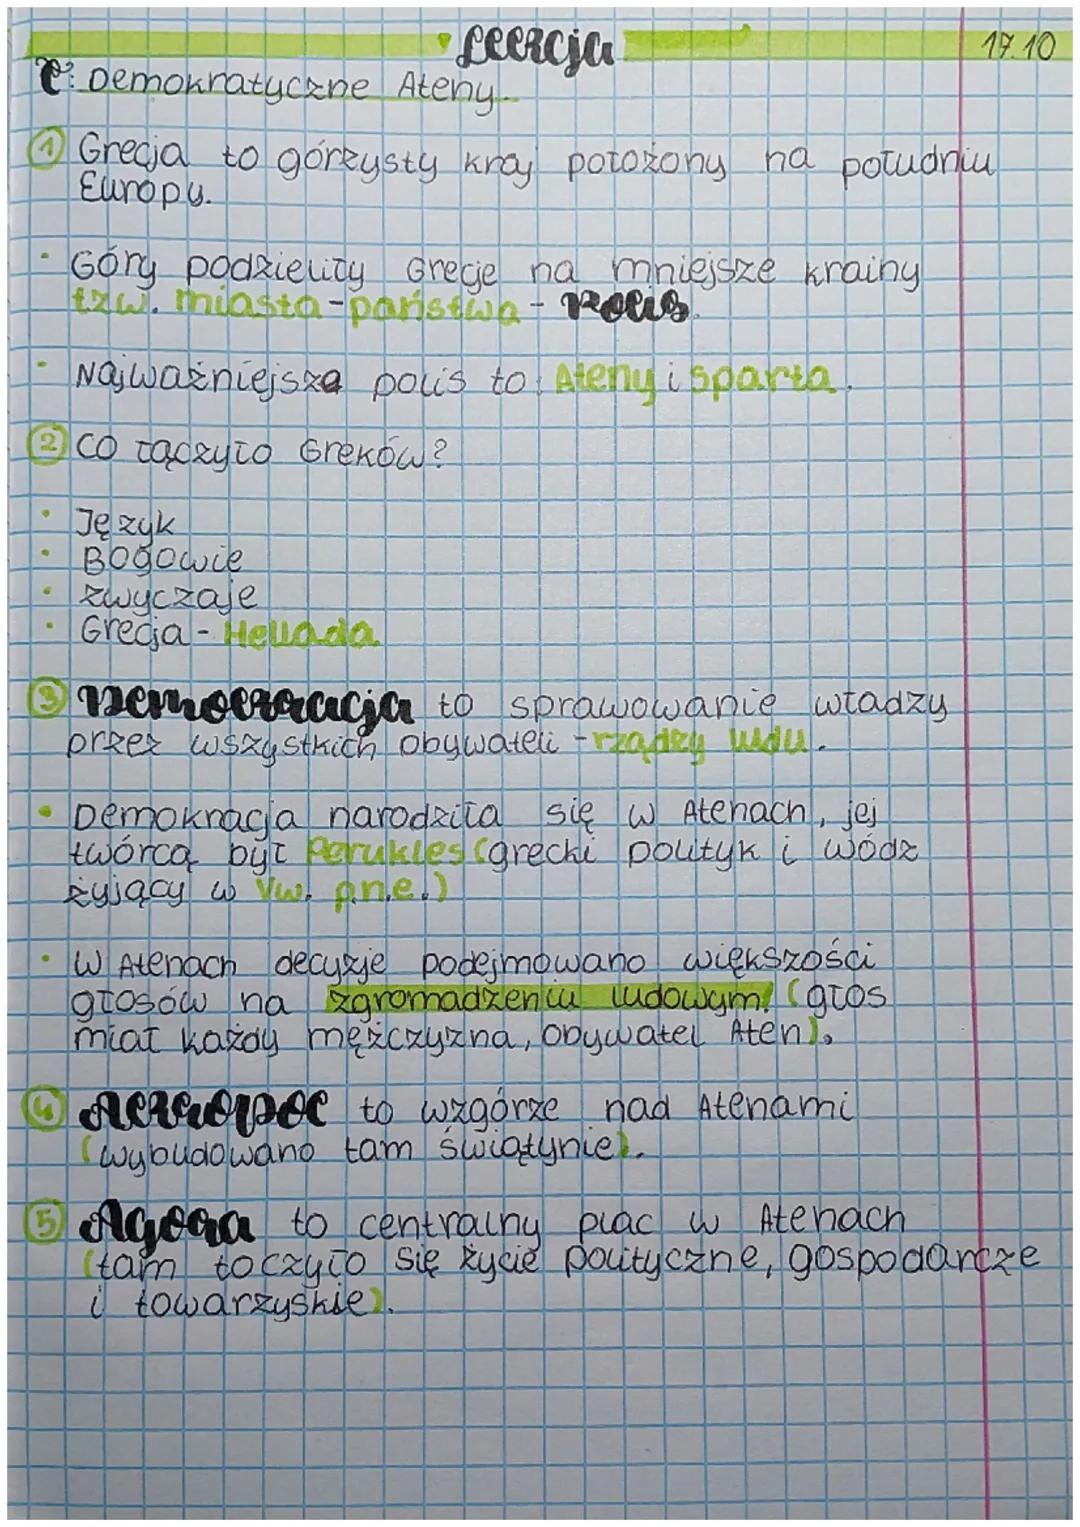 Lekcja 17.10
T: Demokratyczne Ateny.
① Grecja to górzysty kraj położony na południu
Europy.
• Góry podzieliły Grecję na mniejsze krainy
tzw. miasta-państwa - Polis.
• Najważniejsze polis to: Ateny i Sparta.
② Co łączyło Greków?
• Język
• Bogowie
• zwyczaje
• Grecja - Hellada.
③ Demokracja to sprawowanie władzy
przez wszystkich obywateli - rządzy ludu.
• Demokracja narodziła się w Atenach, jej
twórcą był Perykles (grecki polityk i wódz
żyjący w Vw. p.n.e.)
• W Atenach decyzje podejmowano większości
głosów na zgromadzeniu ludowym! (głos
miał każdy mężczyzna, obywatel Aten).
④ Akropol to wzgórze nad Atenami
(wybudowano tam świątynie).
⑤ Agora to centralny plac w Atenach
(tam toczyło się życie polityczne, gospodarcze
i towarzyskie).